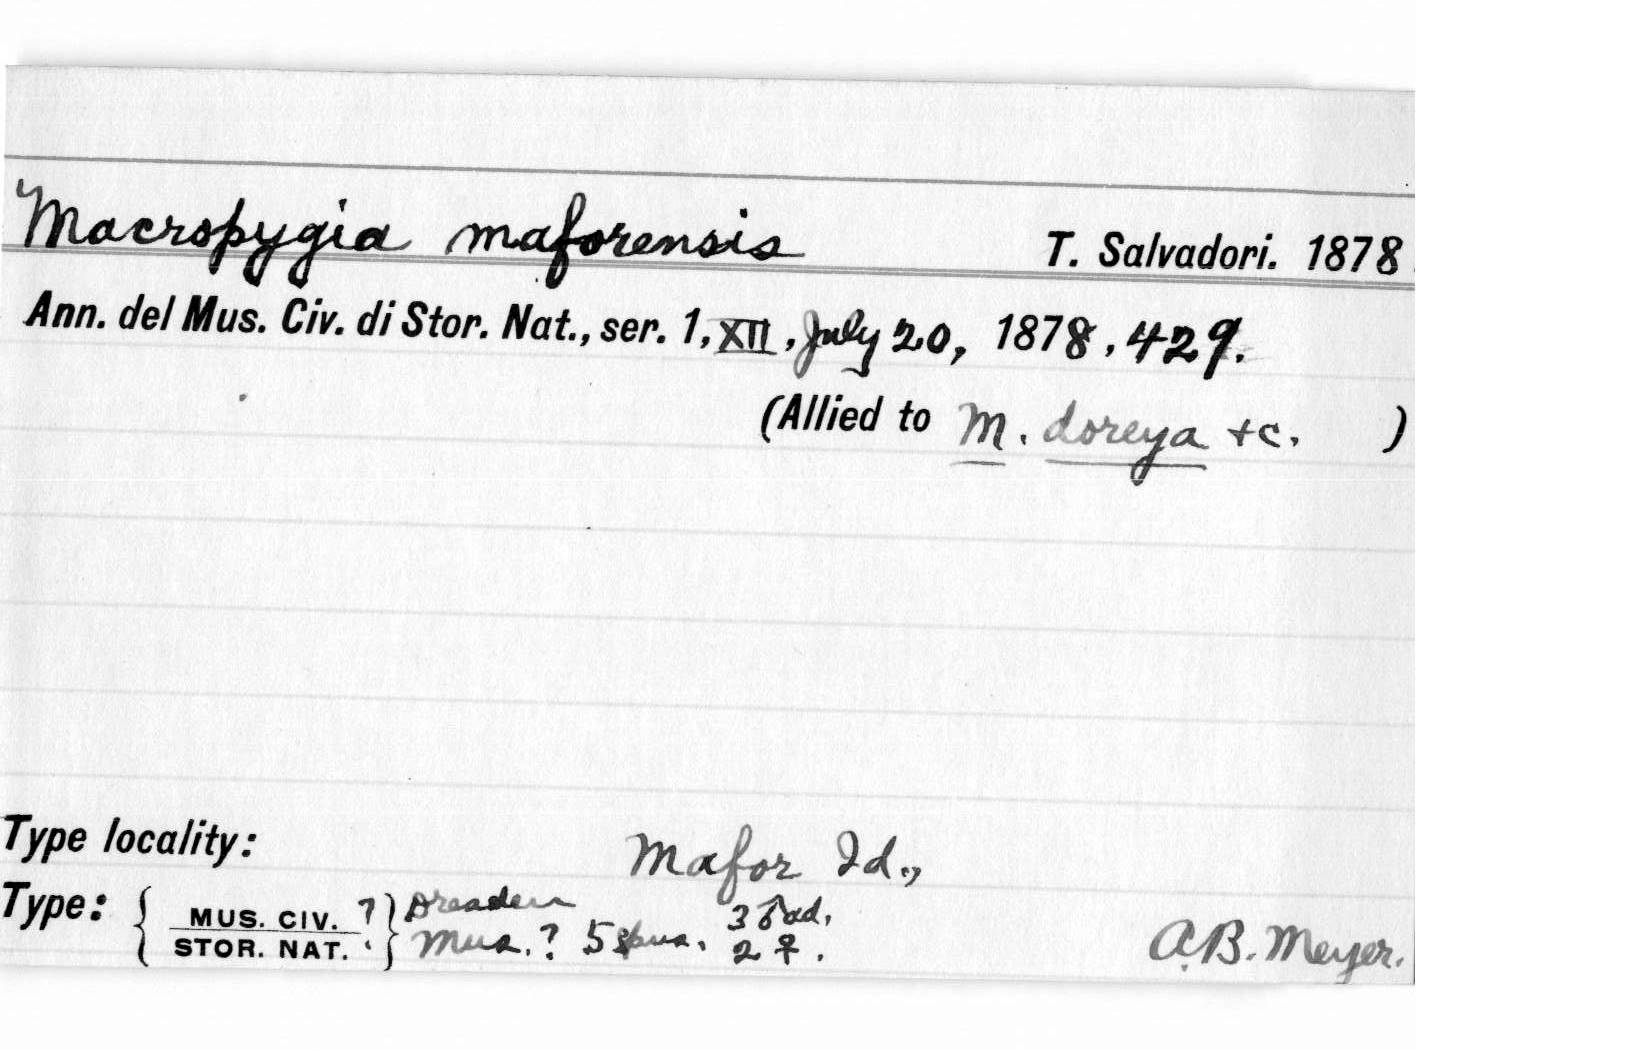 Macropygia maforensis T. Salvadori. 1878
Ann. del Mus. Civ. di Stor. Nat., ser. 1, XII, July 20, 1878, 429.
(Allied to M. doreya +c. )
Type locality: Mafor Id.,
Type: { MUS. CIV. ? } Dresden 3 ♂ ad.
STOR. NAT. Mus. ? 5 spms. 2 ♀. A.B. Meyer.